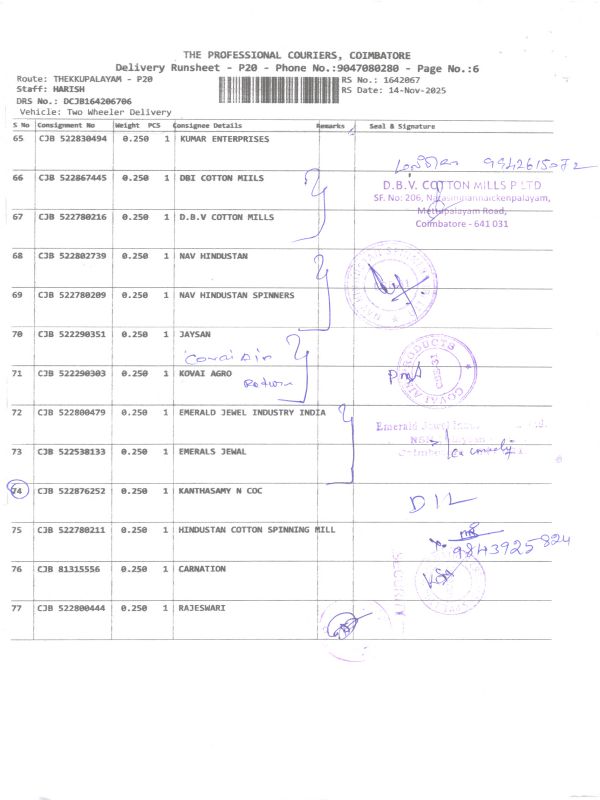 THE PROFESSIONAL COURIERS, COIMBATORE
Delivery Runsheet - P20 - Phone No.:9047080280 - Page No.:6
Route: THEKKUPALAYAM - P20 RS No.: 1642067
Staff: HARISH RS Date: 14-Nov-2025
DRS No.: DCJB164206706
Vehicle: Two Wheeler Delivery
S No Consignment No Weight PCS Consignee Details Remarks Seal & Signature
65 CJB 522830494 0.250 1 KUMAR ENTERPRISES
9942615082
66 CJB 522867445 0.250 1 DBI COTTON MIILS
D.B.V. COTTON MILLS P LTD
SF. No: 206, Narasimhanaickenpalayam,
67 CJB 522780216 0.250 1 D.B.V COTTON MILLS
Mettupalayam Road,
Coimbatore - 641 031
68 CJB 522802739 0.250 1 NAV HINDUSTAN
69 CJB 522780209 0.250 1 NAV HINDUSTAN SPINNERS
70 CJB 522290351 1 JAYSAN
Covai Air
71 CJB 522290303 0.250 1 KOVAI AGRO
Return
COVAI AIR PRODUCTS
72 CJB 522800479 0.250 1 EMERALD JEWEL INDUSTRY INDIA
Emerald Jewel
73 CJB 522538133 0.250 1 EMERALS JEWAL
74 CJB 522876252 0.250 1 KANTHASAMY N COC
DIL
75 CJB 522780211 0.250 1 HINDUSTAN COTTON SPINNING MILL
9843925824
76 CJB 81315556 0.250 1 CARNATION
SECURITY
77 CJB 522800444 0.250 1 RAJESWARI